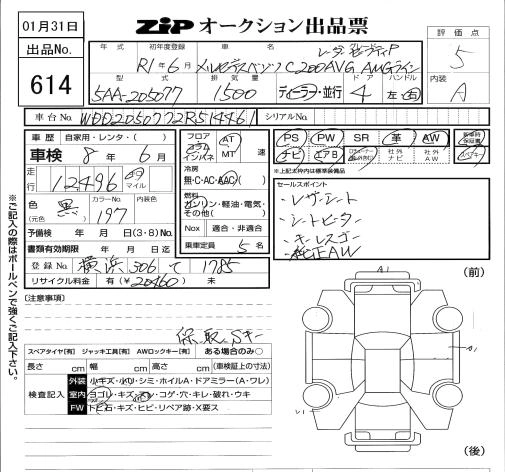 01月31日
出品No.
614
ZiP オークション出品票
評価点
5
内装
A
年式 初年度登録 車名 グレード
R1年6月 メルセデスベンツ C200AVG AMGライン
レーダーセーフティP
型式 排気量 ドア ハンドル
5AA-205077 1500 ディーラー・並行 4 左・右
車台No. WDD2050772R514461 シリアルNo.
車歴 自家用・レンタ・( )
車検 8年 6月
走行 12496 マイル
色 黒 カラーNo. 197 内装色
(元色)
予備検 年 月 日(3・8)No.
書類有効期限 年 月 日迄
登録No. 横浜 306 て 1785
リサイクル料金 有(¥20460) 未
フロア
コラム
インパネ
AT
MT 速
冷房
無・C・AC・AAC
燃料
ガソリン・軽油・電気・
その他( )
Nox 適合・非適合
乗車定員 5名
PS PW SR 革 AW 新車時保証書
ナビ エアB 社外ナビ 社外AW
※上記太枠内は標準装備品
セールスポイント
・レザーシート
・シートヒーター
・キーレスゴー
・純正AW
※ご記入の際はボールペンで強くご記入下さい。
(注意事項)
保、取、Sキー
スペアタイヤ【有】 ジャッキ工具【有】 AWロックキー【有】 ある場合のみ○
長さ cm 幅 cm 高さ cm (車検証上の寸法)
検査記入
外装 小キズ・小凹・シミ・ホイルA・ドアミラー(A・ワレ)
室内 ヨゴレ・キズ・スレ・コゲ・穴・キレ・破れ・ウキ
FW トビ石・キズ・ヒビ・リペア跡・X要ス
(前)
A1
A1
(後)